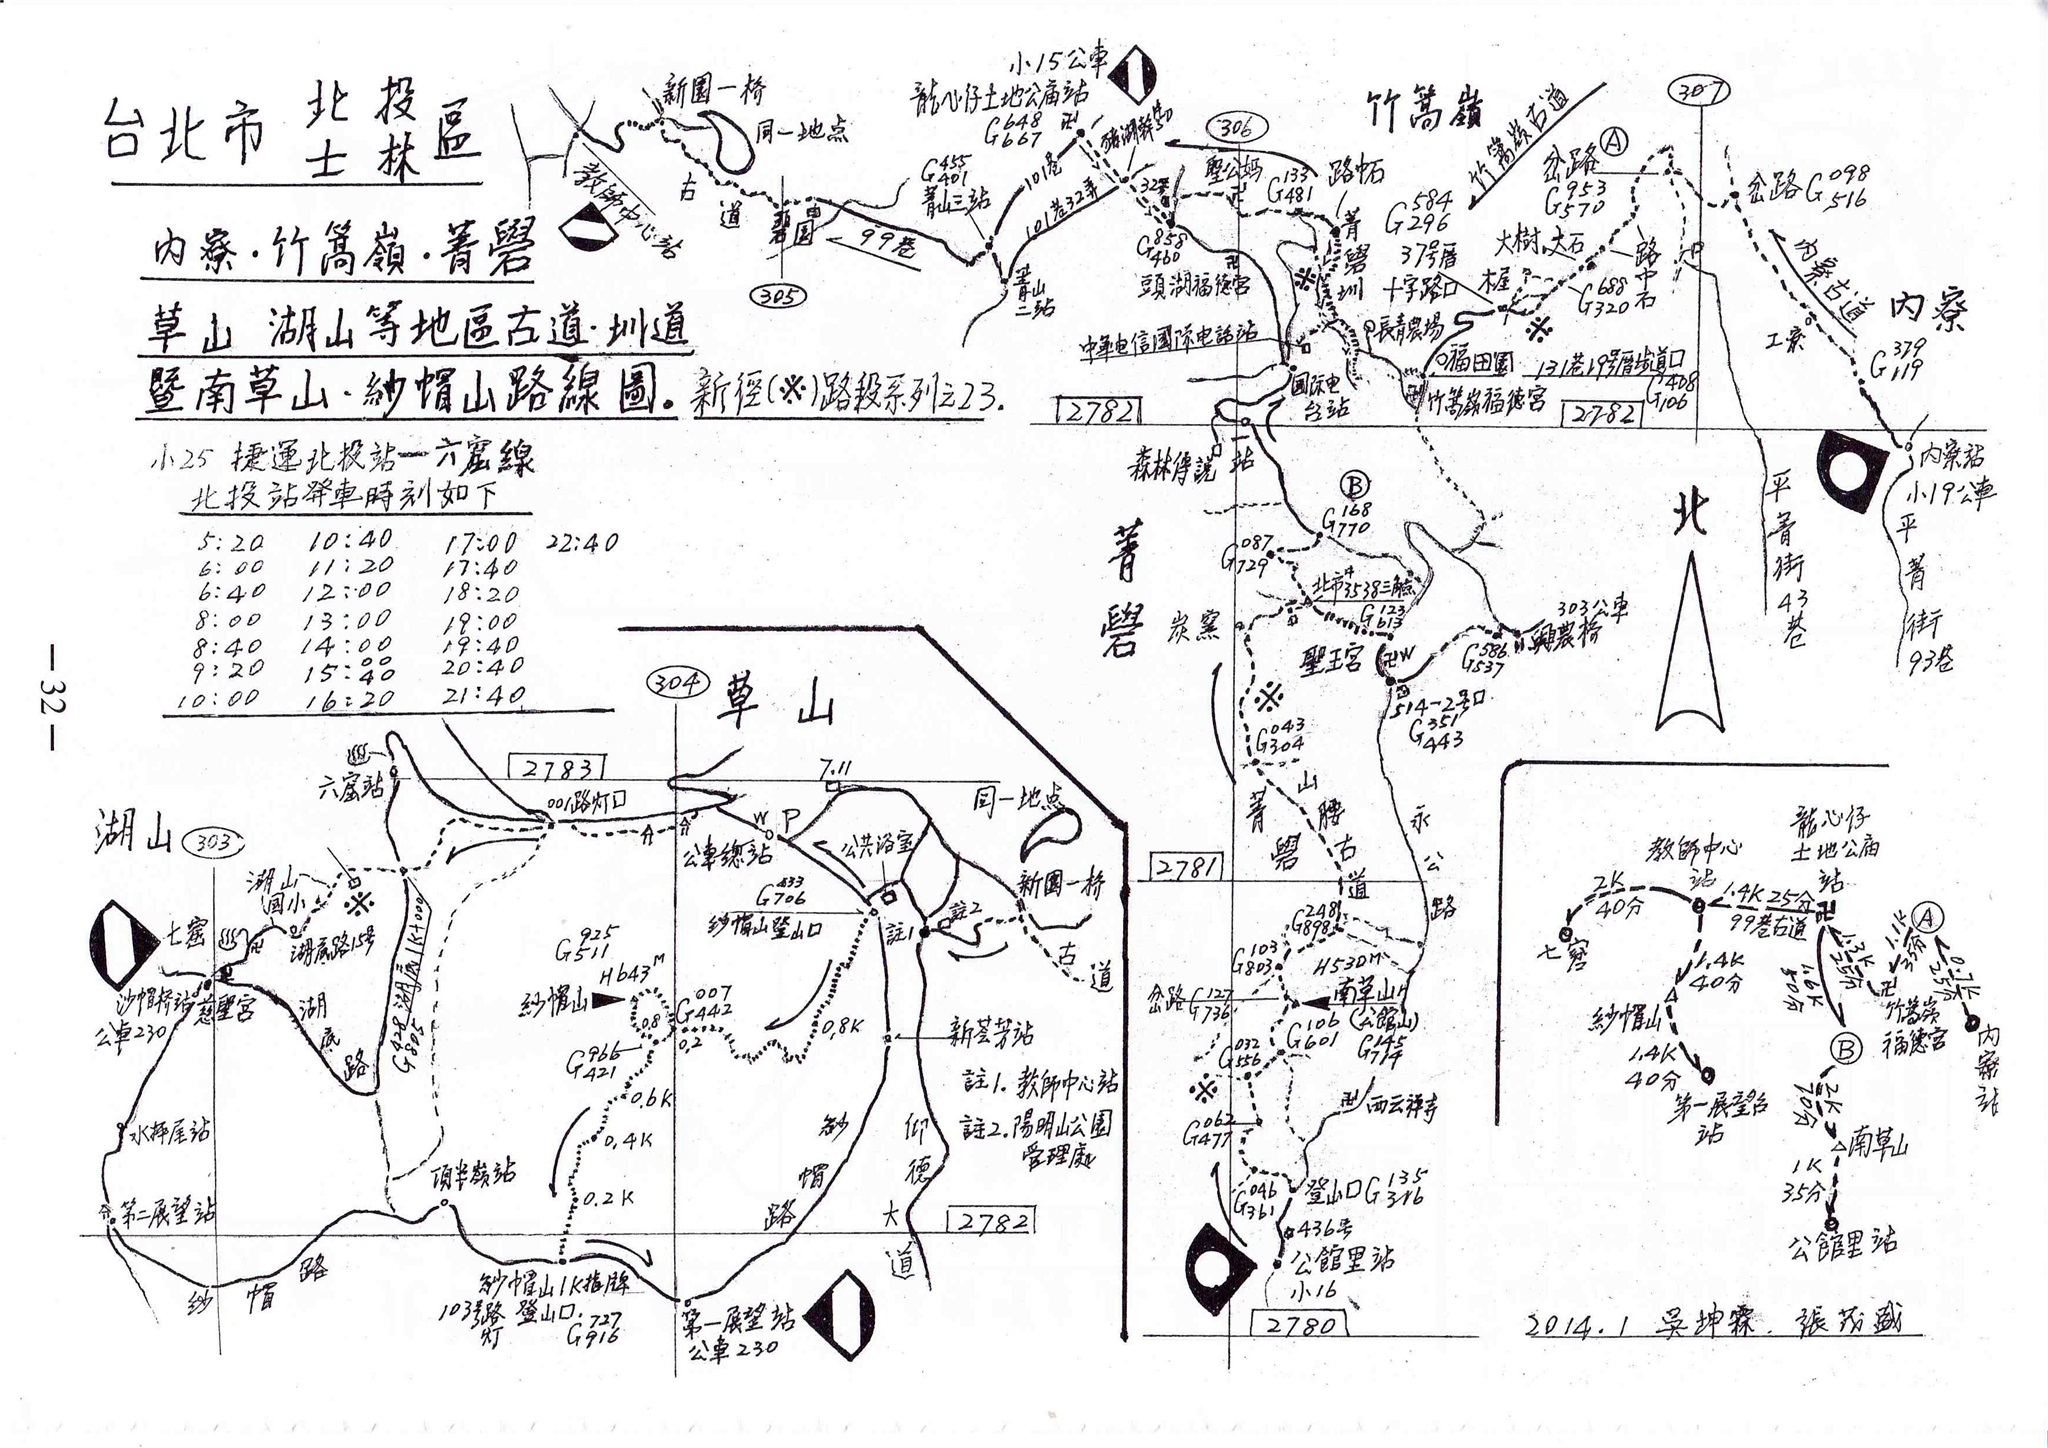 台北市 北投 士林 區
內寮·竹篙嶺·菁礐
草山 湖山等地區古道·圳道
暨南草山·紗帽山路線圖。新徑(※)路段系列之23.
小25 捷運北投站一六窟線
北投站發車時刻如下
5:20 10:40 17:00 22:40
6:00 11:20 17:40
6:40 12:00 18:20
8:00 13:00 19:00
8:40 14:00 19:40
9:20 15:00 20:40
15:40
10:00 16:20 21:40
—32—
新園一橋
同一地点
教師中心站
古道
305
99巷
G455
401
菁山三站
龍心仔土地公庙站
小15公車
G648
667
101巷
101巷32弄
菁山二站
306
聖公媽
G133
481
路中石
菁礐圳
※
G858
460
頭湖福德宮
中華电信國际电話站
国际电台站
竹篙嶺
竹篙嶺古道
G584
296
37号厝
十字路口
長青農場
福田園
竹篙嶺福德宮
131巷19号厝步道口
G408
106
岔路 Ⓐ
G953
570
大樹.大石
路中石
G688
320
※
307
岔路 G098
516
內寮古道
工寮
內寮
G379
119
內寮站
小19公車
平菁街93巷
平菁街43巷
P
2782
2782
森林傳說
一站
Ⓑ
G168
770
G087
729
北市4 3538三角点
G123
613
菁礐
炭窯
聖王宮
W
G586
537
303公車
興農橋
514-2号口
G351
443
※
G043
304
菁礐山腰古道
永公路
北
2781
G248
898
G103
803
H530M
岔路 G127
736
南草山
(公館山)
G106
601
G145
714
G032
556
※
西云禅寺
G062
477
G046
361
登山口 G135
346
436号
公館里站
小16
2780
304
草山
7.11
2783
六窟站
001路灯口
W P
公車總站
公共浴室
同一地点
新園一橋
古道
湖山
303
湖山国小
※
湖底路15号
七窟
沙帽橋站
公車230
慈聖宮
湖底路
G428 湖底1K+000
805
G433
706
紗帽山登山口
註1
註2
G925
511
H643M
紗帽山
G007
442
0.8
0.2
0.8K
G966
421
0.6K
0.4K
0.2K
新荟芳站
註1.教師中心站
註2.陽明山公園
管理處
紗帽路
仰德大道
水秤尾站
第二展望站
頂半嶺站
紗帽路
2782
紗帽山1K指牌
103号路灯 登山口.
G727
916
第一展望站
公車230
教師中心站
龍心仔土地公庙站
2K
40分
七窟
1.4K 25分
99巷古道
1.4K
40分
紗帽山
1.4K
40分
第一展望台站
1.3K
25分
1.6K
50分
1.1K
35分
Ⓐ
0.7K
25分
竹篙嶺福德宮
內寮站
Ⓑ
2K
70分
南草山
1K
35分
公館里站
2014.1 吳坤霖. 張茂盛